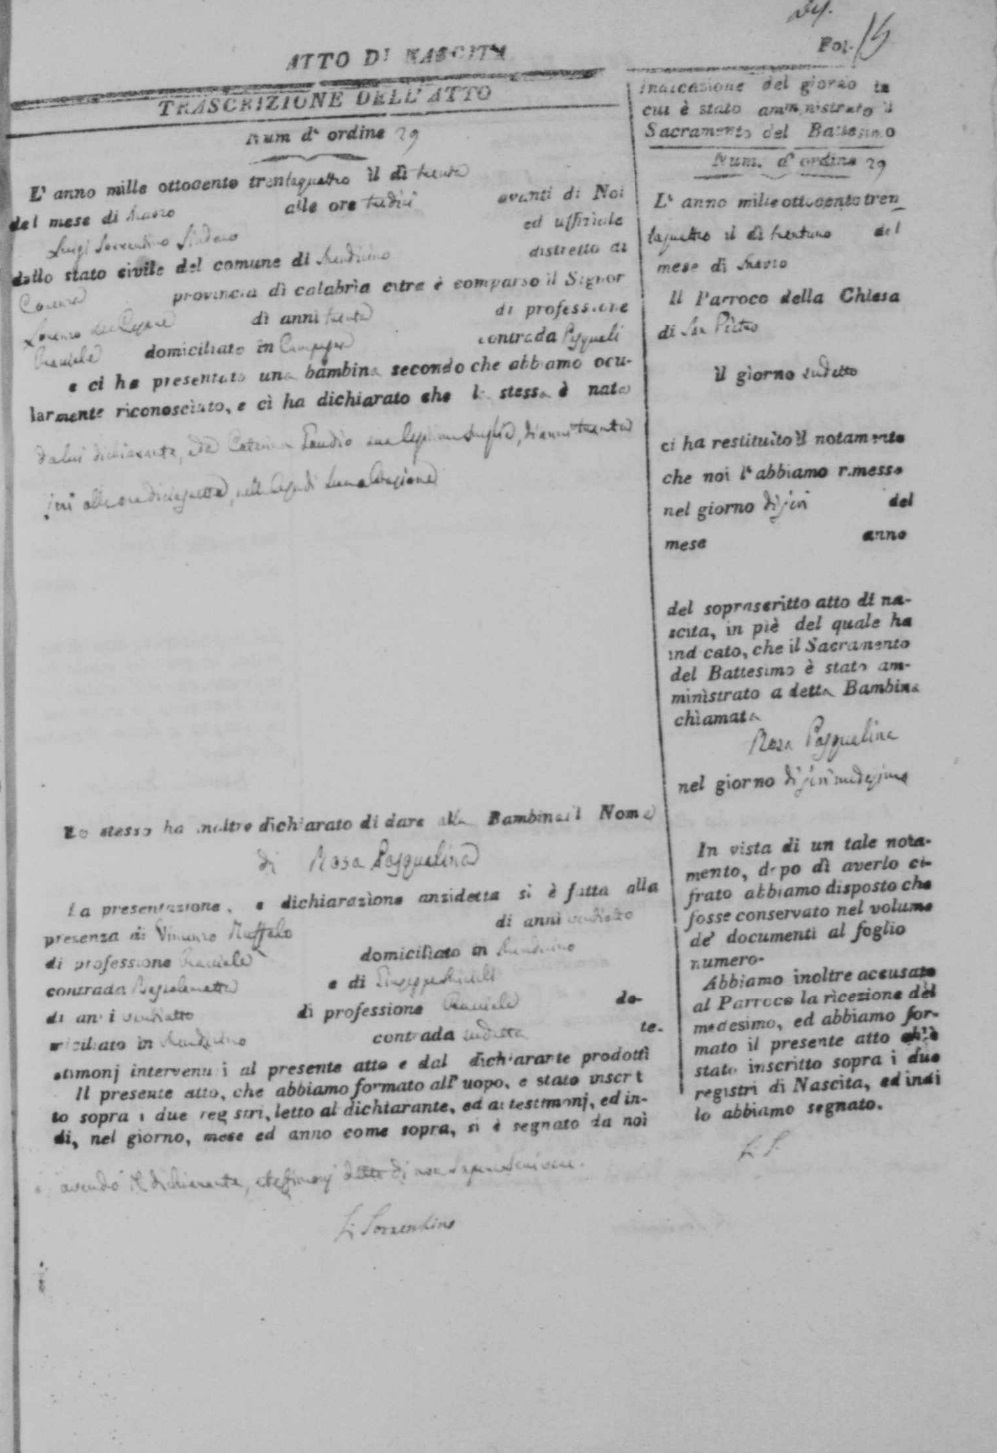 Fol. 15
ATTO DI NASCITA
TRASCRIZIONE DELL'ATTO
Num d'ordine 29
L'anno mille ottocento trentaquattro il dì trenta
del mese di alle ore tredici avanti di Noi
Luigi Sorrentino Sindaco ed uffiziale
dello stato civile del comune di distretto di
Cosenza provincia di calabria citra è comparso il Signor
Lorenzo di anni trenta di professione
domiciliato in contrada
e ci ha presentato una bambina secondo che abbiamo ocu-
larmente riconosciuto, e ci ha dichiarato che la stessa è nata
da lui dichiarante, e da Caterina sua legittima moglie, di anni trenta
jeri alle ore diciasette, nella casa di
Lo stesso ha inoltre dichiarato di dare alla Bambina il Nome
di Rosa Pasqualina
La presentazione, e dichiarazione anzidetta si è fatta alla
presenza di Vincenzo Ruffolo di anni
di professione domiciliato in
contrada e di Giuseppe
di anni di professione do-
miciliato in contrada sudetta te-
stimonj intervenuti al presente atto e dal dichiarante prodotti
Il presente atto, che abbiamo formato all'uopo, e stato inscrit
to sopra i due registri, letto al dichiarante, ed ai testimonj, ed in-
di, nel giorno, mese ed anno come sopra, si è segnato da noi
avendo il dichiarante, e testimonj detto di non saper scrivere.
L. Sorrentino
Indicazione del giorno in
cui è stato amministrato il
Sacramento del Battesimo
Num. d'ordine 29
L'anno mille ottocento tren_
taquattro il dì trentuno del
mese di
Il Parroco della Chiesa
di San Pietro
il giorno sudetto
ci ha restituito il notamento
che noi l'abbiamo rimesso
nel giorno di jeri del
mese anno
del soprascritto atto di na-
scita, in piè del quale ha
indicato, che il Sacramento
del Battesimo è stato am-
ministrato a detta Bambina
chiamata
Rosa Pasqualina
nel giorno di jeri medesimo
In vista di un tale nota-
mento, dopo di averlo ci-
frato abbiamo disposto che
fosse conservato nel volume
de' documenti al foglio
numero-
Abbiamo inoltre accusato
al Parroco la ricezione del
medesimo, ed abbiamo for-
mato il presente atto ch'è
stato inscritto sopra i due
registri di Nascita, ed indi
lo abbiamo segnato.
L. S.